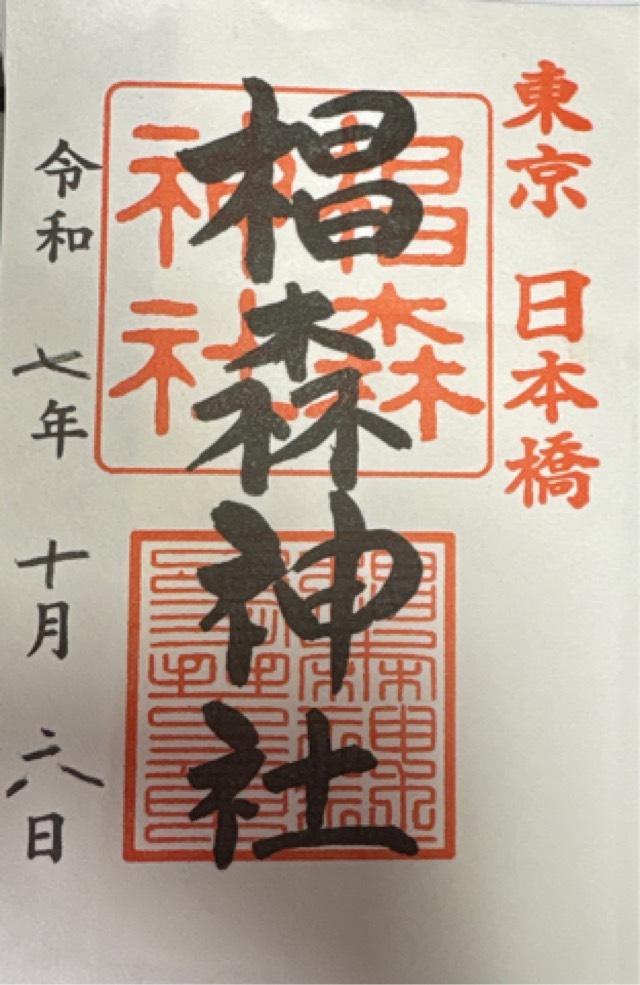 東京 日本橋
椙森
神社
椙森神社
令和 七年 十月 六日